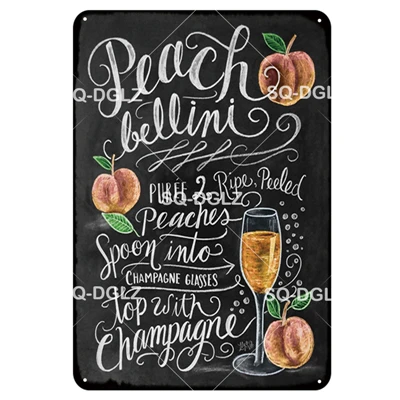 Peach
bellini
SQ-DGLZ
SQ-DGLZ
PURÉE 2 Ripe, Peeled
SQ-DGLZ
Peaches
Spoon into
CHAMPAGNE GLASSES
SQ-DGLZ
SQ-DGLZ
top with
Champagne